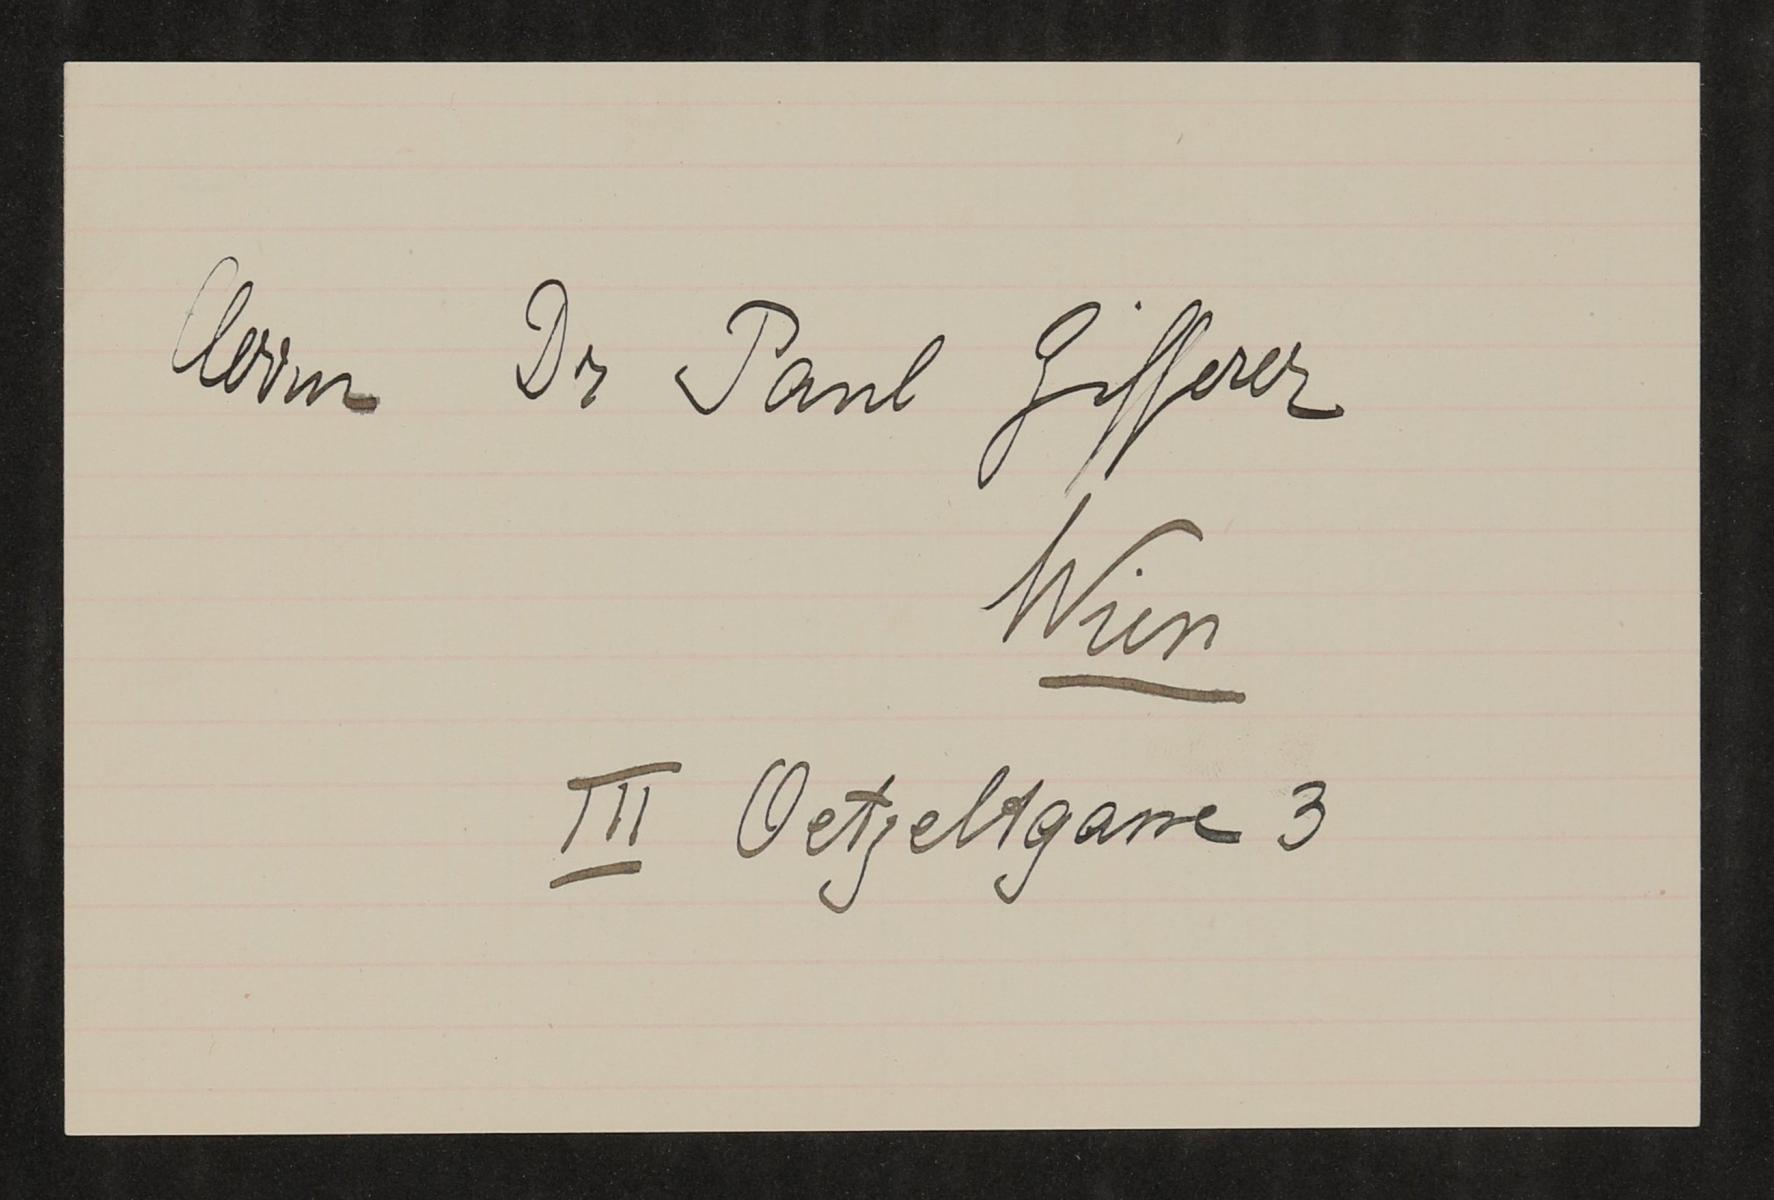 Herrn Dr Paul Zifferer
Wien
III Oetzeltgasse 3